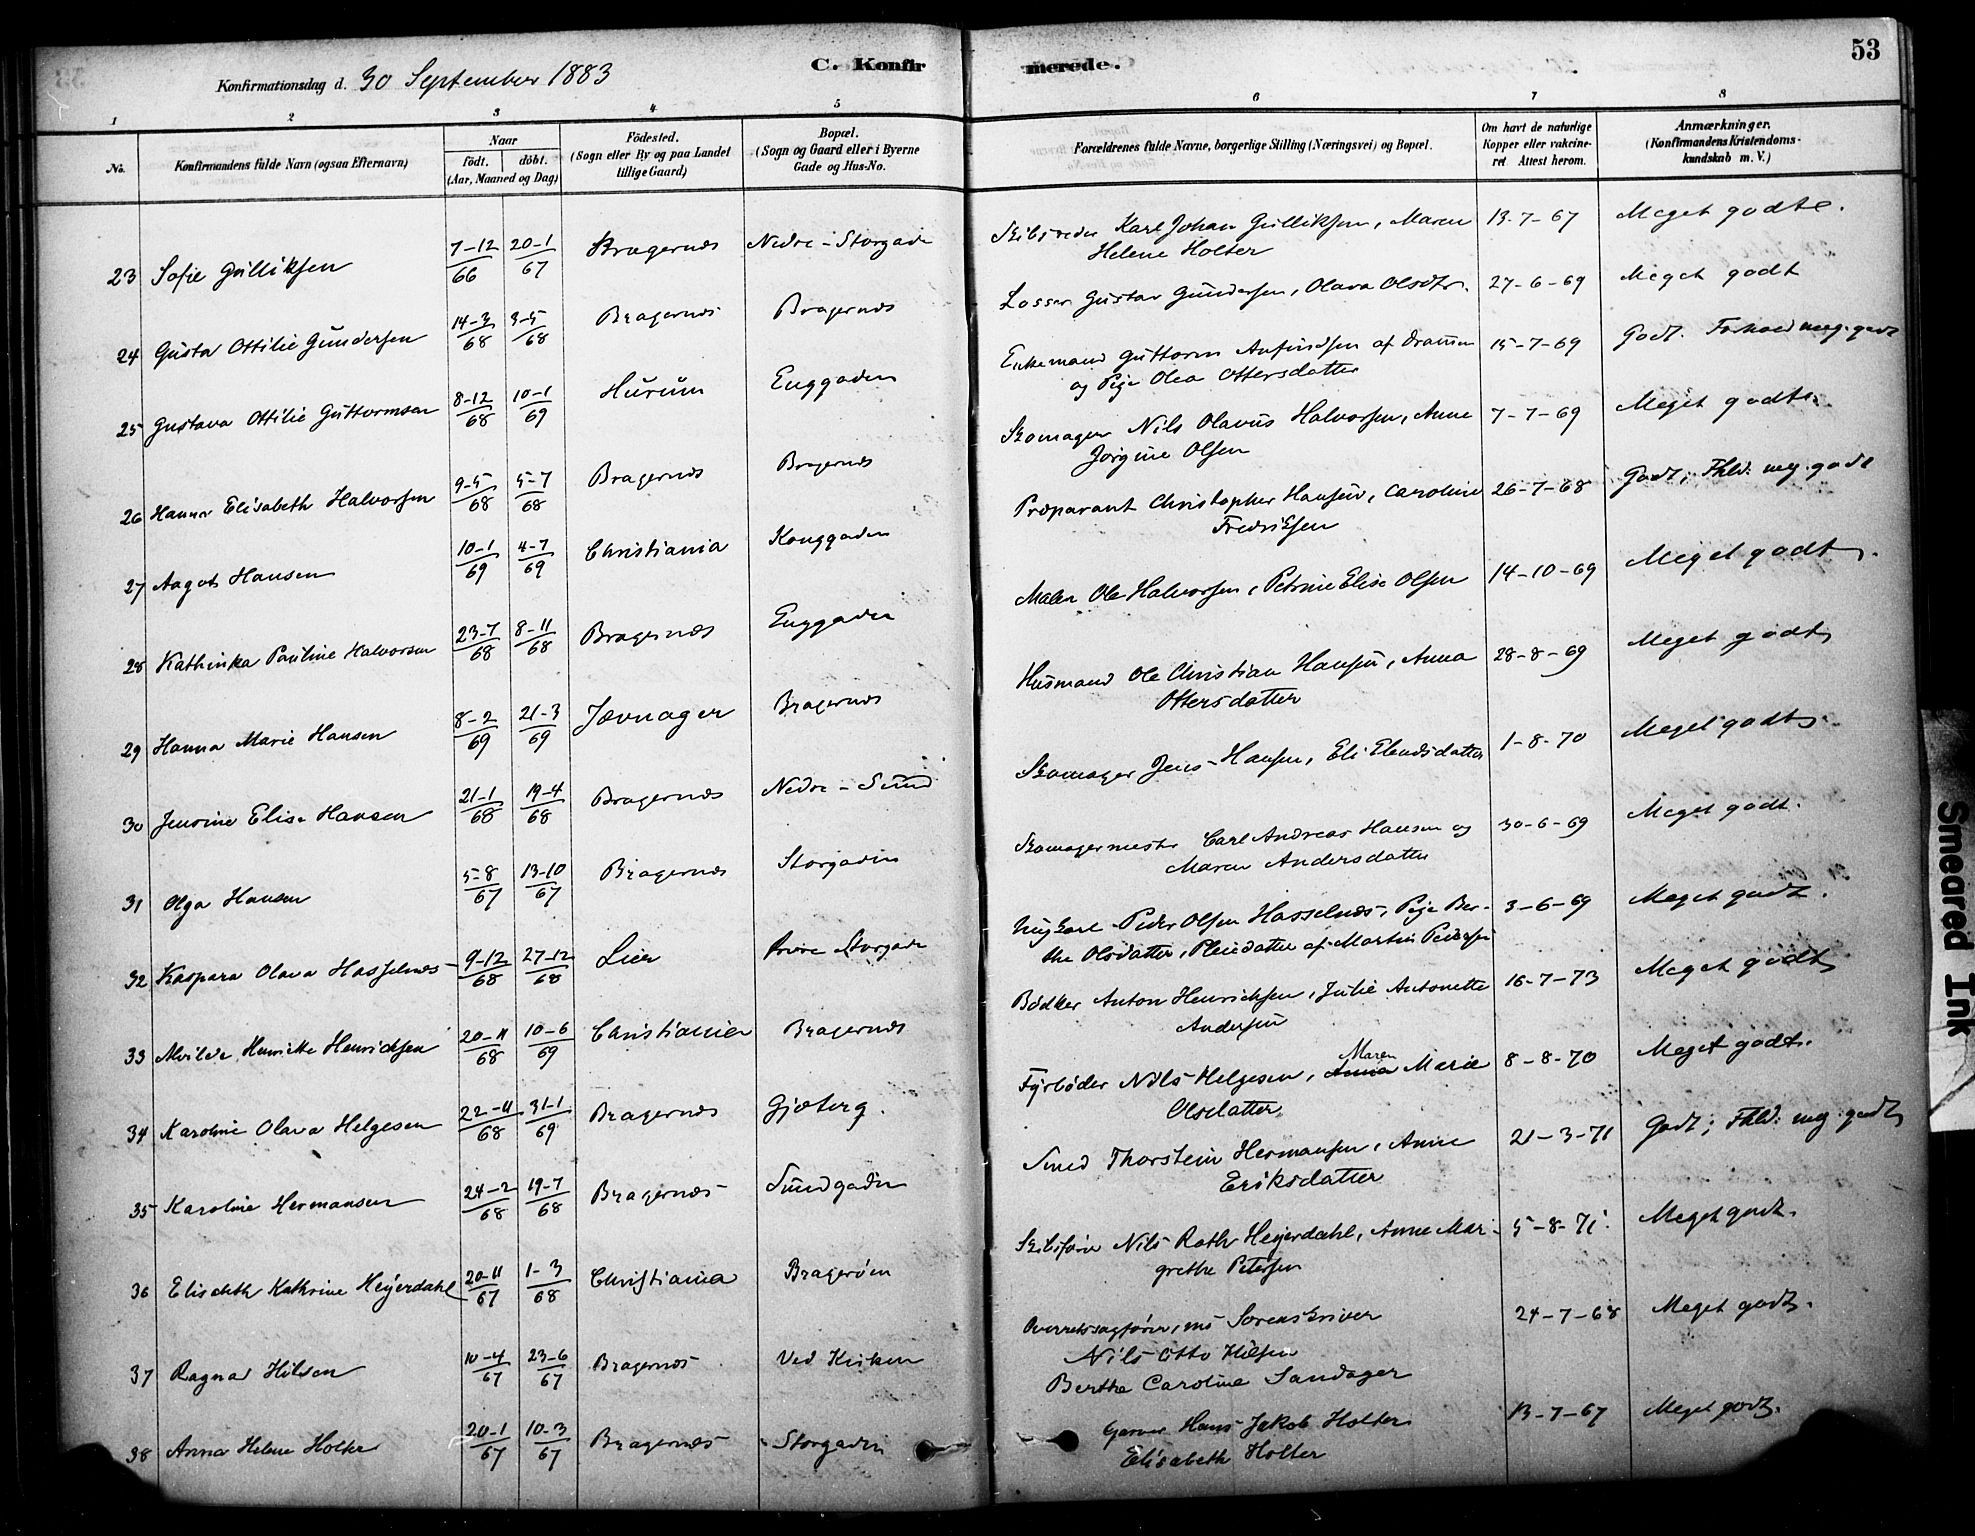 53
Konfirmationsdag d. 30 September 1883
C. Konfirmerede.
1 2 3 4 5 6 7 8
No. Konfirmandens fulde Navn (ogsaa Efternavn) Naar födt. döbt. (Aar, Maaned og Dag) Födested. (Sogn eller By og paa Landet tillige Gaard) Bopæl. (Sogn og Gaard eller i Byerne Gade og Hus-No. Forældrenes fulde Navne, borgerlige Stilling (Næringsvei) og Bopæl. Om havt de naturlige Kopper eller vakcineret Attest herom. Anmærkninger. (Konfirmandens Kristendomskundskab m. V.)
23 Sofie Gulliksen 7-12/66 20-1/67 Bragernes Nedre-Storgade Skibsreder Karl Johan Gulliksen, Maren 13-7-67 Meget godt.
Helene Holter
24 Gusta Ottilie Gundersen 14-3/68 3-5/68 Bragernes Bragernes Losser Gustav Gundersen, Olava Olsdtr. 27-6-69 Meget godt
25 Gustava Ottilie Guttormsen 8-12/68 10-1/69 Hurum Enggaden Enkemand Guttorm Anfindsen af Drammen 15-7-69 Godt. Forhold meg. godt
og Pige Olea Ottersdatter
26 Hanna Elisabeth Halvorsen 9-5/68 5-7/68 Bragernes Bragernes Skomager Nils Olavus Halvorsen, Anne 7-7-69 Meget godt.
Jørgine Olsen
27 Aagot Hansen 10-1/69 4-7/69 Christiania Konggaden Præparant Christopher Hansen, Caroline 26-7-68 Godt; Fhld. meg. godt
Fredriksen
28 Kathinka Pauline Halvorsen 23-7/68 8-11/68 Bragernes Enggaden Maler Ole Halvorsen, Petrine Elise Olsen 14-10-69 Meget godt.
29 Hanna Marie Hansen 8-2/69 21-3/69 Jævnager Bragernes Husmand Ole Christian Hansen, Anna 28-8-69 Meget godt
Ottersdatter
30 Jensine Elise Hansen 21-1/68 19-4/68 Bragernes Nedre-Sund Skomager Jens Hansen, Eli Elendsdatter 1-8-70 Meget godt.
31 Olga Hansen 5-8/67 13-10/67 Bragernes Storgaden Skomagermester Carl Andreas Hansen og 30-6-69 Meget godt.
Maren Andersdatter
32 Kaspara Olava Hasselnes 9-12/68 27-12/68 Lier Øvre Storgade Ungkarl Peder Olsen Hasselnæs, Pige Ber- 3-6-69 Meget godt.
the Olsdatter, Pleiedatter af Martin Pedersen
33 Alvilde Henriette Henrichsen 20-11/68 10-6/69 Christiania Bragernes Bødker Anton Henrichsen, Julie Antonette 16-7-73 Meget godt
Andersen
34 Karoline Olava Helgesen 22-11/68 31-1/69 Bragernes Gjeterg. Fyrbøder Nils Helgesen, Anna Maren Marie 8-8-70 Meget godt.
Olsdatter
35 Karoline Hermansen 24-2/68 19-7/68 Bragernes Sundgaden Smed Thorstein Hermansen, Anne 21-3-71 Godt; Fhld. meg. godt
Eriksdatter
36 Elisabeth Kathrine Heyerdahl 20-11/67 1-3/68 Christiania Bragerøen Skibsfører Nils Roth Heyerdahl, Anne Mar- 5-8-71. Meget godt.
grethe Petersen
37 Ragna Hilsen 10-4/67 23-6/67 Bragernes Ved Kirken Overretssagfører, nu Sorenskriver 24-7-68 Meget godt.
Nils Otto Hilsen
Berthe Caroline Sandager
38 Anna Helene Holter 20-1/67 10-3/67 Bragernes Storgaden Garver Hans Jakob Holter 13-7-67 Meget godt.
Elisabeth Holter
Smeared Ink